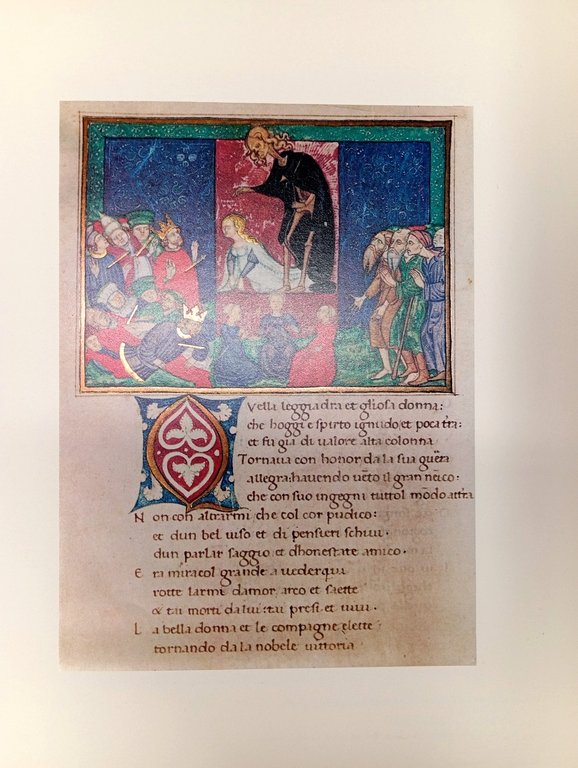 QVella leggiadra et gl̃iosa donna:
che hoggi e spirto ignudo, et poca tr̃a:
et fu gia di ualore alta colonna
Tornaua con honor da la sua guẽra
allegra: hauendo uĩto il gran neĩco:
che con suo ingegni tuttol mõdo attr̃a
Non con altrarmi che col cor pudico:
et dun bel uiso et di pensieri schiui.
dun parlar saggio et dhonestate amico.
Era miracol grande a uederqui
rotte larmi damor, arco et saette
& tai morti da lui: tai presi et uiui.
La bella donna et le compagne elette
tornando da la nobele uittoria